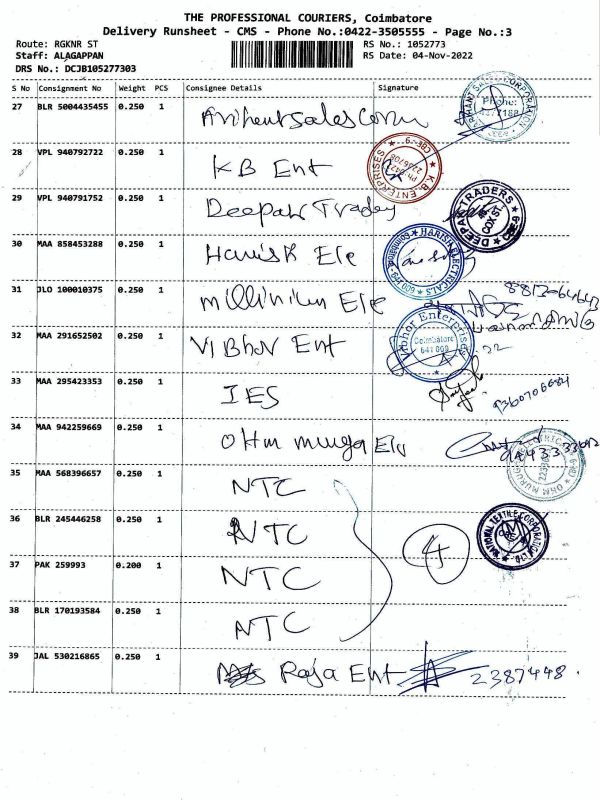 THE PROFESSIONAL COURIERS, Coimbatore
Delivery Runsheet - CMS - Phone No.:0422-3505555 - Page No.:3
Route: RGKNR ST RS No.: 1052773
Staff: ALAGAPPAN RS Date: 04-Nov-2022
DRS No.: DCJB105277303
S No Consignment No Weight PCS Consignee Details Signature
27 BLR 5004435455 0.250 1 Arihant sales Corpn
28 VPL 940792722 0.250 1 KB Ent
K.B. ENTERPRISES CBE-9
29 VPL 940791752 0.250 1 Deepak Tradey
DEEPAK TRADERS COX ST
30 MAA 858453288 0.250 1 Harish Ele
HARISH ELECTRICALS
31 JLO 100010375 0.250 1 millinium Ele
32 MAA 291652502 0.250 1 VIBhor Ent
Vibhor Enterprises Coimbatore
33 MAA 295423353 0.250 1 IES
34 MAA 942259669 0.250 1 Ohm muruga Ele
OHM MURUGA
35 MAA 568396657 0.250 1 NTC
36 BLR 245446258 0.250 1 NTC
NATIONAL TEXTILE CORPORATION
37 PAK 259993 0.200 1 NTC 4
38 BLR 170193584 0.250 1 NTC
39 JAL 530216865 0.250 1 Raja Ent 2387448.